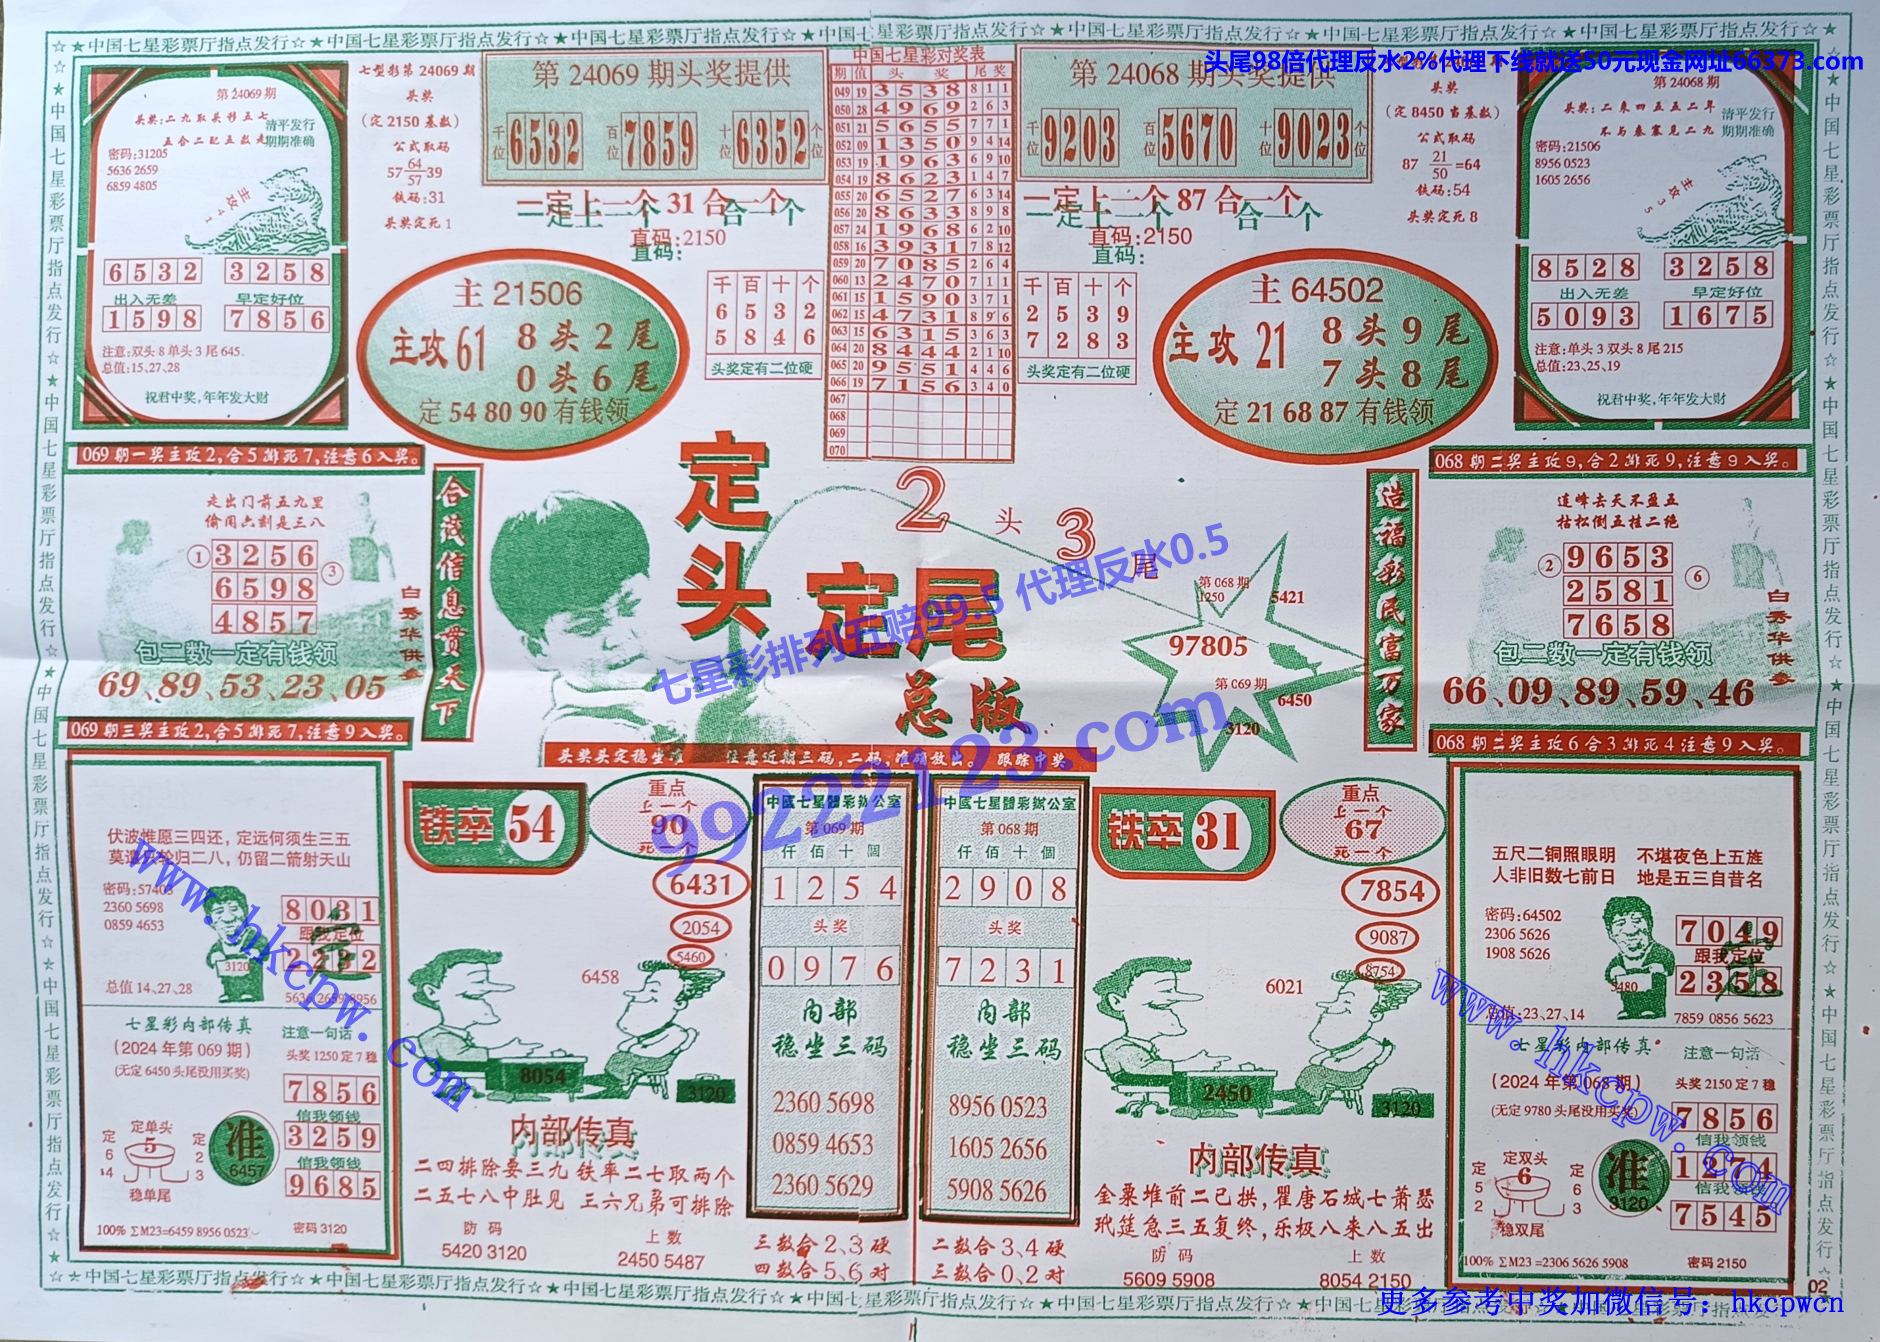 ☆★中国七星彩票厅指点发行☆★中国七星彩票厅指点发行☆★中国七星彩票厅指点发行☆★中国七星彩票厅指点发行☆
头尾98倍代理反水2%代理下线就送50元现金网址66373.com
第 24069 期
头奖:二九取头形五七
五合二配五数走
清平发行
期期准确
密码:31205
5636 2659
6859 4805
主攻41
6532 3258
出入无差 早定好位
1598 7856
注意:双头 8 单头 3 尾 645.
总值:15、27、28
祝君中奖,年年发大财
七型彩第 24069 期
头奖
(定 2150 基数)
公式取码
57 64/57 39
铁码:31
头奖定死 1
第 24069 期头奖提供
千位 6532 百位 7859 十位 6352 个位
一定上一个 31 合一个
直码:2150
主 21506
主攻 61
8 头 2 尾
0 头 6 尾
定 54 80 90 有钱领
千百十个
6532
5846
头奖定有二位硬
中国七星彩对奖表
期 值 头奖 尾奖
049 19 3538 8 1 1
050 28 4969 2 6 3
051 21 5655 7 7 1
052 09 1350 9 4 14
053 19 1963 6 9 10
054 19 8623 1 4 7
055 20 6527 6 3 14
056 20 8633 8 9 8
057 24 1968 6 2 10
058 16 3931 7 8 12
059 20 7085 2 6 4
060 13 2470 7 1 1
061 15 1590 3 7 1
062 15 4731 8 9 6
063 15 6315 3 6 3
064 20 8444 2 1 10
065 20 9551 4 4 6
066 19 7156 3 4 0
067
068
069
070
第 24068 期头奖提供
千位 9203 百位 5670 十位 9023 个位
一定上一个 87 合一个
直码:2150
千百十个
2539
7283
头奖定有二位硬
主 64502
主攻 21
8 头 9 尾
7 头 8 尾
定 21 68 87 有钱领
头奖
(定 8450 当基数)
公式取码
87 21/50=64
铁码:54
头奖定死 8
第 24068 期
头奖:二来四五五二年
不与秦塞见二九
清平发行
期期准确
密码:21506
8956 0523
1605 2656
主攻35
8528 3258
出入无差 早定好位
5093 1675
注意:单头 3 双头 8 尾 215
总值:23、25、19
祝君中奖,年年发大财
069 期一奖主攻 2,合 5 排死 7,注意 6 入奖。
走出门前五九里
偷闲六刻是三八
① 3256
6598 ③
4857
包二数一定有钱领
69、89、53、23、05
白秀华供参
069 期三奖主攻 2,合 5 排死 7,注意 9 入奖。
合诚信息贯天下
定头
定尾
总版
2 头 3 尾
第 068 期
1250
5421
97805
第 069 期
6450
3120
头奖头定稳坐准 注意近期三码,二码,准确放出。 跟踪中奖
造福彩民富万家
068 期二奖主攻 9,合 2 排死 9,注意 9 入奖。
连峰去天不盈五
枯松倒五挂二绝
② 9653
2581 ⑥
7658
包二数一定有钱领
66、09、89、59、46
白秀华供参
068 期二奖主攻 6 合 3 排死 4 注意 9 入奖。
七星彩排列五赔99.5 代理反水0.5
99222123.com
伏波惟愿三四还,定远何须生三五
莫遣只轮归二八,仍留二箭射天山
密码:57403
2360 5698
0859 4653
3120
8031
跟我定位
2232
5636 2659 8956
总值 14、27、28
www.hkcpw.com
七星彩内部传真
(2024 年第 069 期)
(无定 6450 头尾没用买奖)
注意一句话
头奖 1250 定 7 稳
7856
信我领钱
3259
信我领钱
9685
定单头
5
定 6 4
定 2 3
稳单尾
准
6457
100% ∑M23=6459 8956 0523
密码 3120
铁卒 54
重点
上一个
90
死一个
6431
2054
5460
6458
8054
3120
内部传真
二四排除要三九 铁率二七取两个
二五七八中肚见 三六兄弟可排除
防码
5420 3120
上数
2450 5487
中國七星體彩辦公室
第 069 期
仟佰十個
1254
头奖
0976
内部
稳坐三码
2360 5698
0859 4653
2360 5629
三数合 2、3 硬
四数合 5、6 对
中國七星體彩辦公室
第 068 期
仟佰十個
2908
头奖
7231
内部
稳坐三码
8956 0523
1605 2656
5908 5626
二数合 3、4 硬
三数合 0、2 对
铁卒 31
重点
上一个
67
死一个
7854
9087
8754
6021
2450
3120
内部传真
金粟堆前二已拱,瞿唐石城七萧瑟
玳筵急三五复终,乐极八来八五出
防码
5609 5908
上数
8054 2150
五尺二铜照眼明 不堪夜色上五旌
人非旧数七前日 地是五三自昔名
密码:64502
2306 5626
1908 5626
5480
7049
跟我定位
2358
7859 0856 5623
总值:23、27、14
www.hkcpw.com
七星彩内部传真
(2024 年第 068 期)
(无定 9780 头尾没用买奖)
注意一句话
头奖 2150 定 7 稳
7856
信我领钱
1274
信我领钱
7545
定双头
6
定 5 2
定 6 3
稳双尾
准
3120
100% ∑M23 =2306 5626 5908
密码 2150
02
☆★中国七星彩票厅指点发行☆★中国七星彩票厅指点发行☆★中国七星彩票厅指点发行☆★中国七星彩票厅指点发行☆
更多参考中奖加微信号:hkcpwcn